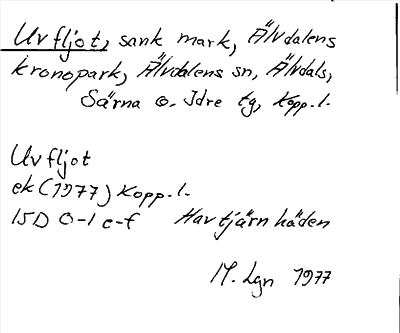 Uvfljot, sank mark, Älvdalens
kronopark, Älvdalens sn, Älvdals,
Särna o. Idre tg, Kopp. l.
Uvfljot
ek (1977) Kopp. l.
15D 0-1 e-f Havtjärnhäden
M. Lgn 1977